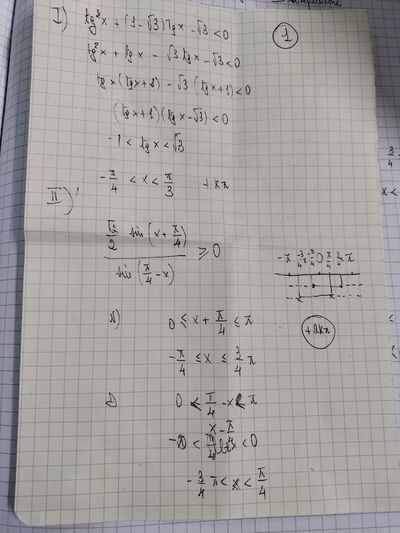 I) tg²x + (1-√3)tgx - √3 < 0
①
tg²x + tgx - √3 tgx - √3 < 0
tgx (tgx+1) - √3 (tgx+1) < 0
(tgx+1)(tgx-√3) < 0
-1 < tgx < √3
-π/4 < x < π/3 + kπ
II)'
√2/2 sin(x + π/4) / sin(π/4 - x) ≥ 0
-π -3/4π -π/4 0 π/4 3/4π π
+2kπ
N) 0 ≤ x + π/4 ≤ π
-π/4 ≤ x ≤ 3/4 π
D 0 < π/4 - x < π
x - π/4
-π < < 0
-3/4 π < x < π/4